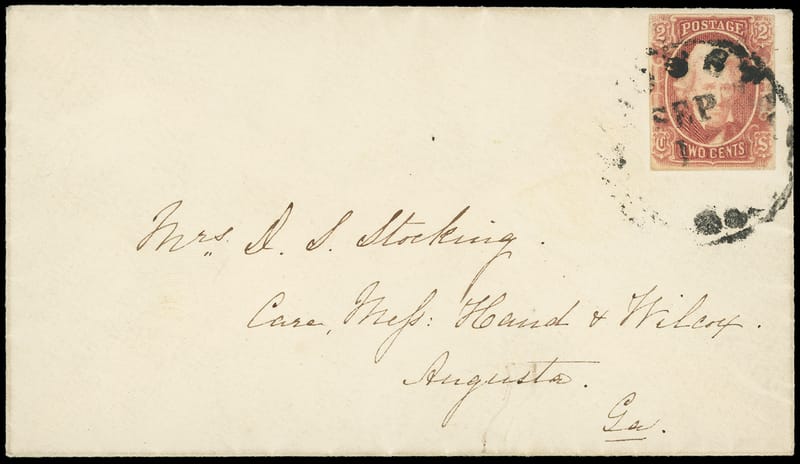 2 POSTAGE 2
SEP
1
C TWO CENTS S
Mrs. D. S. Stocking.
Care, Mess: Hand & Wilcox.
Augusta.
Ga.